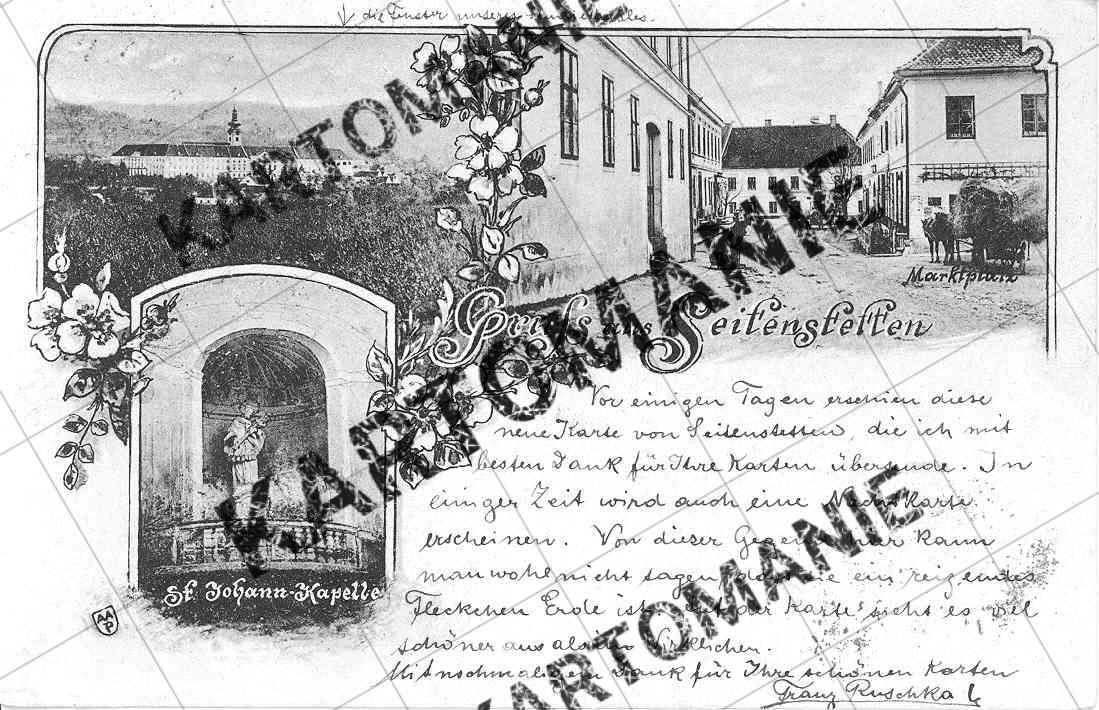 ↓ die Fenster unseres
KARTOMANIE
KARTOMANIE
Marktplatz
Gruss aus Seitenstetten
KARTOMANIE
Vor einigen Tagen erschien diese
neue Karte von Seitenstetten, die ich mit
besten Dank für Ihre Karten übersende. In
einiger Zeit wird auch eine Karte
erscheinen. Von dieser Gegend hier kann
man wohl nicht sagen, daß sie ein reizendes
St. Johann-Kapelle
Fleckchen Erde ist. Auf der Karte sieht es viel
AAP
schöner aus als im Wirklichen.
KARTOMANIE
Mit nochmaligem Dank für Ihre schönen Karten
Franz Ruschka
KARTOMANIE